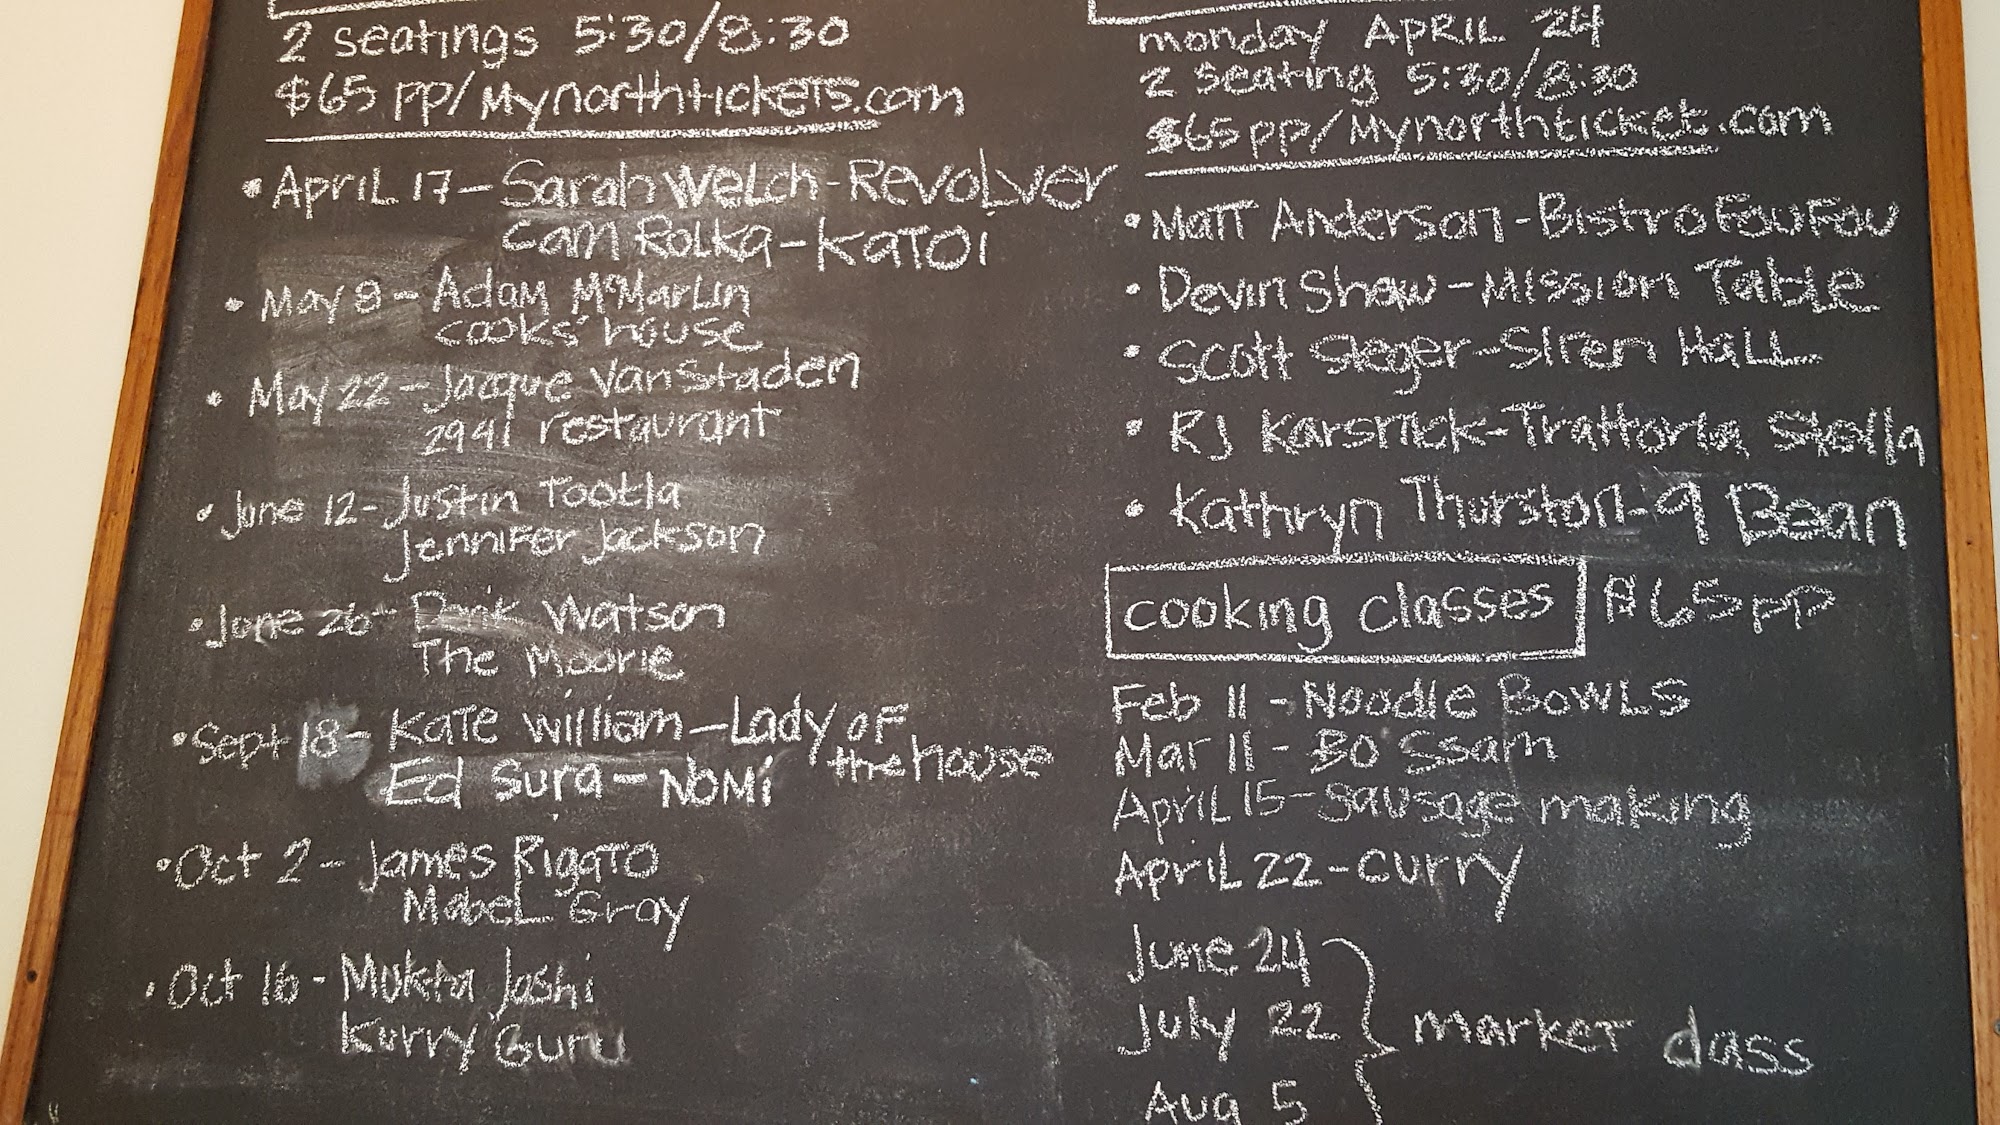 2 seatings 5:30/8:30
$65 pp/Mynorthtickets.com
• April 17 - Sarah Welch - Revolver
Cam Rolka - Katoi
• May 8 - Adam McMarlin
cooks' house
• May 22 - Jacque VanStaden
2941 restaurant
• June 12 - Justin Tootla
Jennifer Jackson
• June 26 - Derik Watson
The Moorie
• Sept 18 - Kate William - Lady of
the house
Ed Sura - NOMI
• Oct 2 - James Rigato
Mabel Gray
• Oct 16 - Mukta Joshi
Kurry Guru
monday APRIL 24
2 seating 5:30/8:30
$65 pp/Mynorthticket.com
• Matt Anderson - Bistro FouFou
• Devin Shaw - Mission Table
• Scott Sieger - Siren Hall
• RJ Karsnick - Trattoria Stella
• Kathryn Thurston - 9 Bean
cooking classes $65 pp
Feb 11 - Noodle Bowls
Mar 11 - Bo Ssam
April 15 - Sausage making
April 22 - curry
June 24
July 22 market class
Aug 5